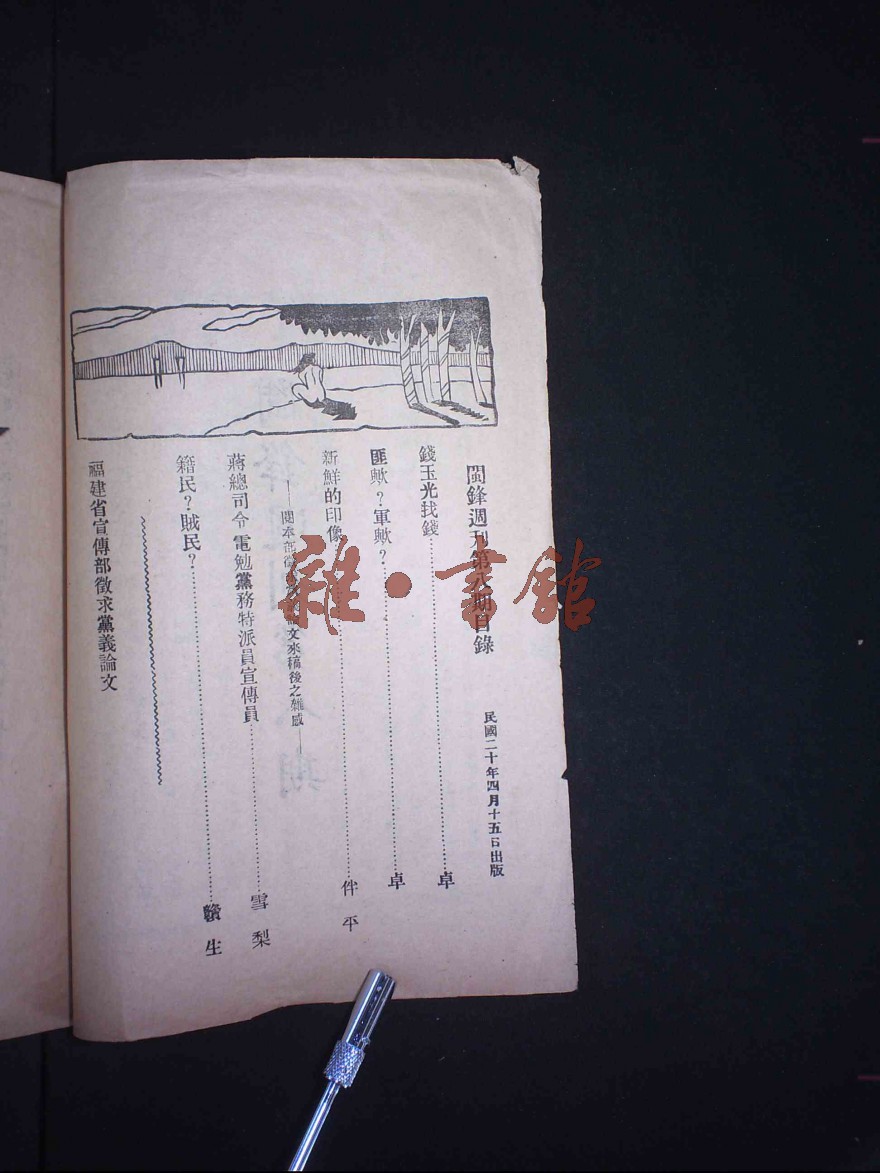 閩鋒週刊第八期目錄
民國二十年四月十五日出版
錢玉光找錢……卓
匪歟？軍歟？……卓
新鮮的印像……伴平
——閱本部徵文來稿後之雜感——
蔣總司令電勉黨務特派員宣傳員……雪梨
籍民？賊民？……生
福建省宣傳部徵求黨義論文
雜·書館